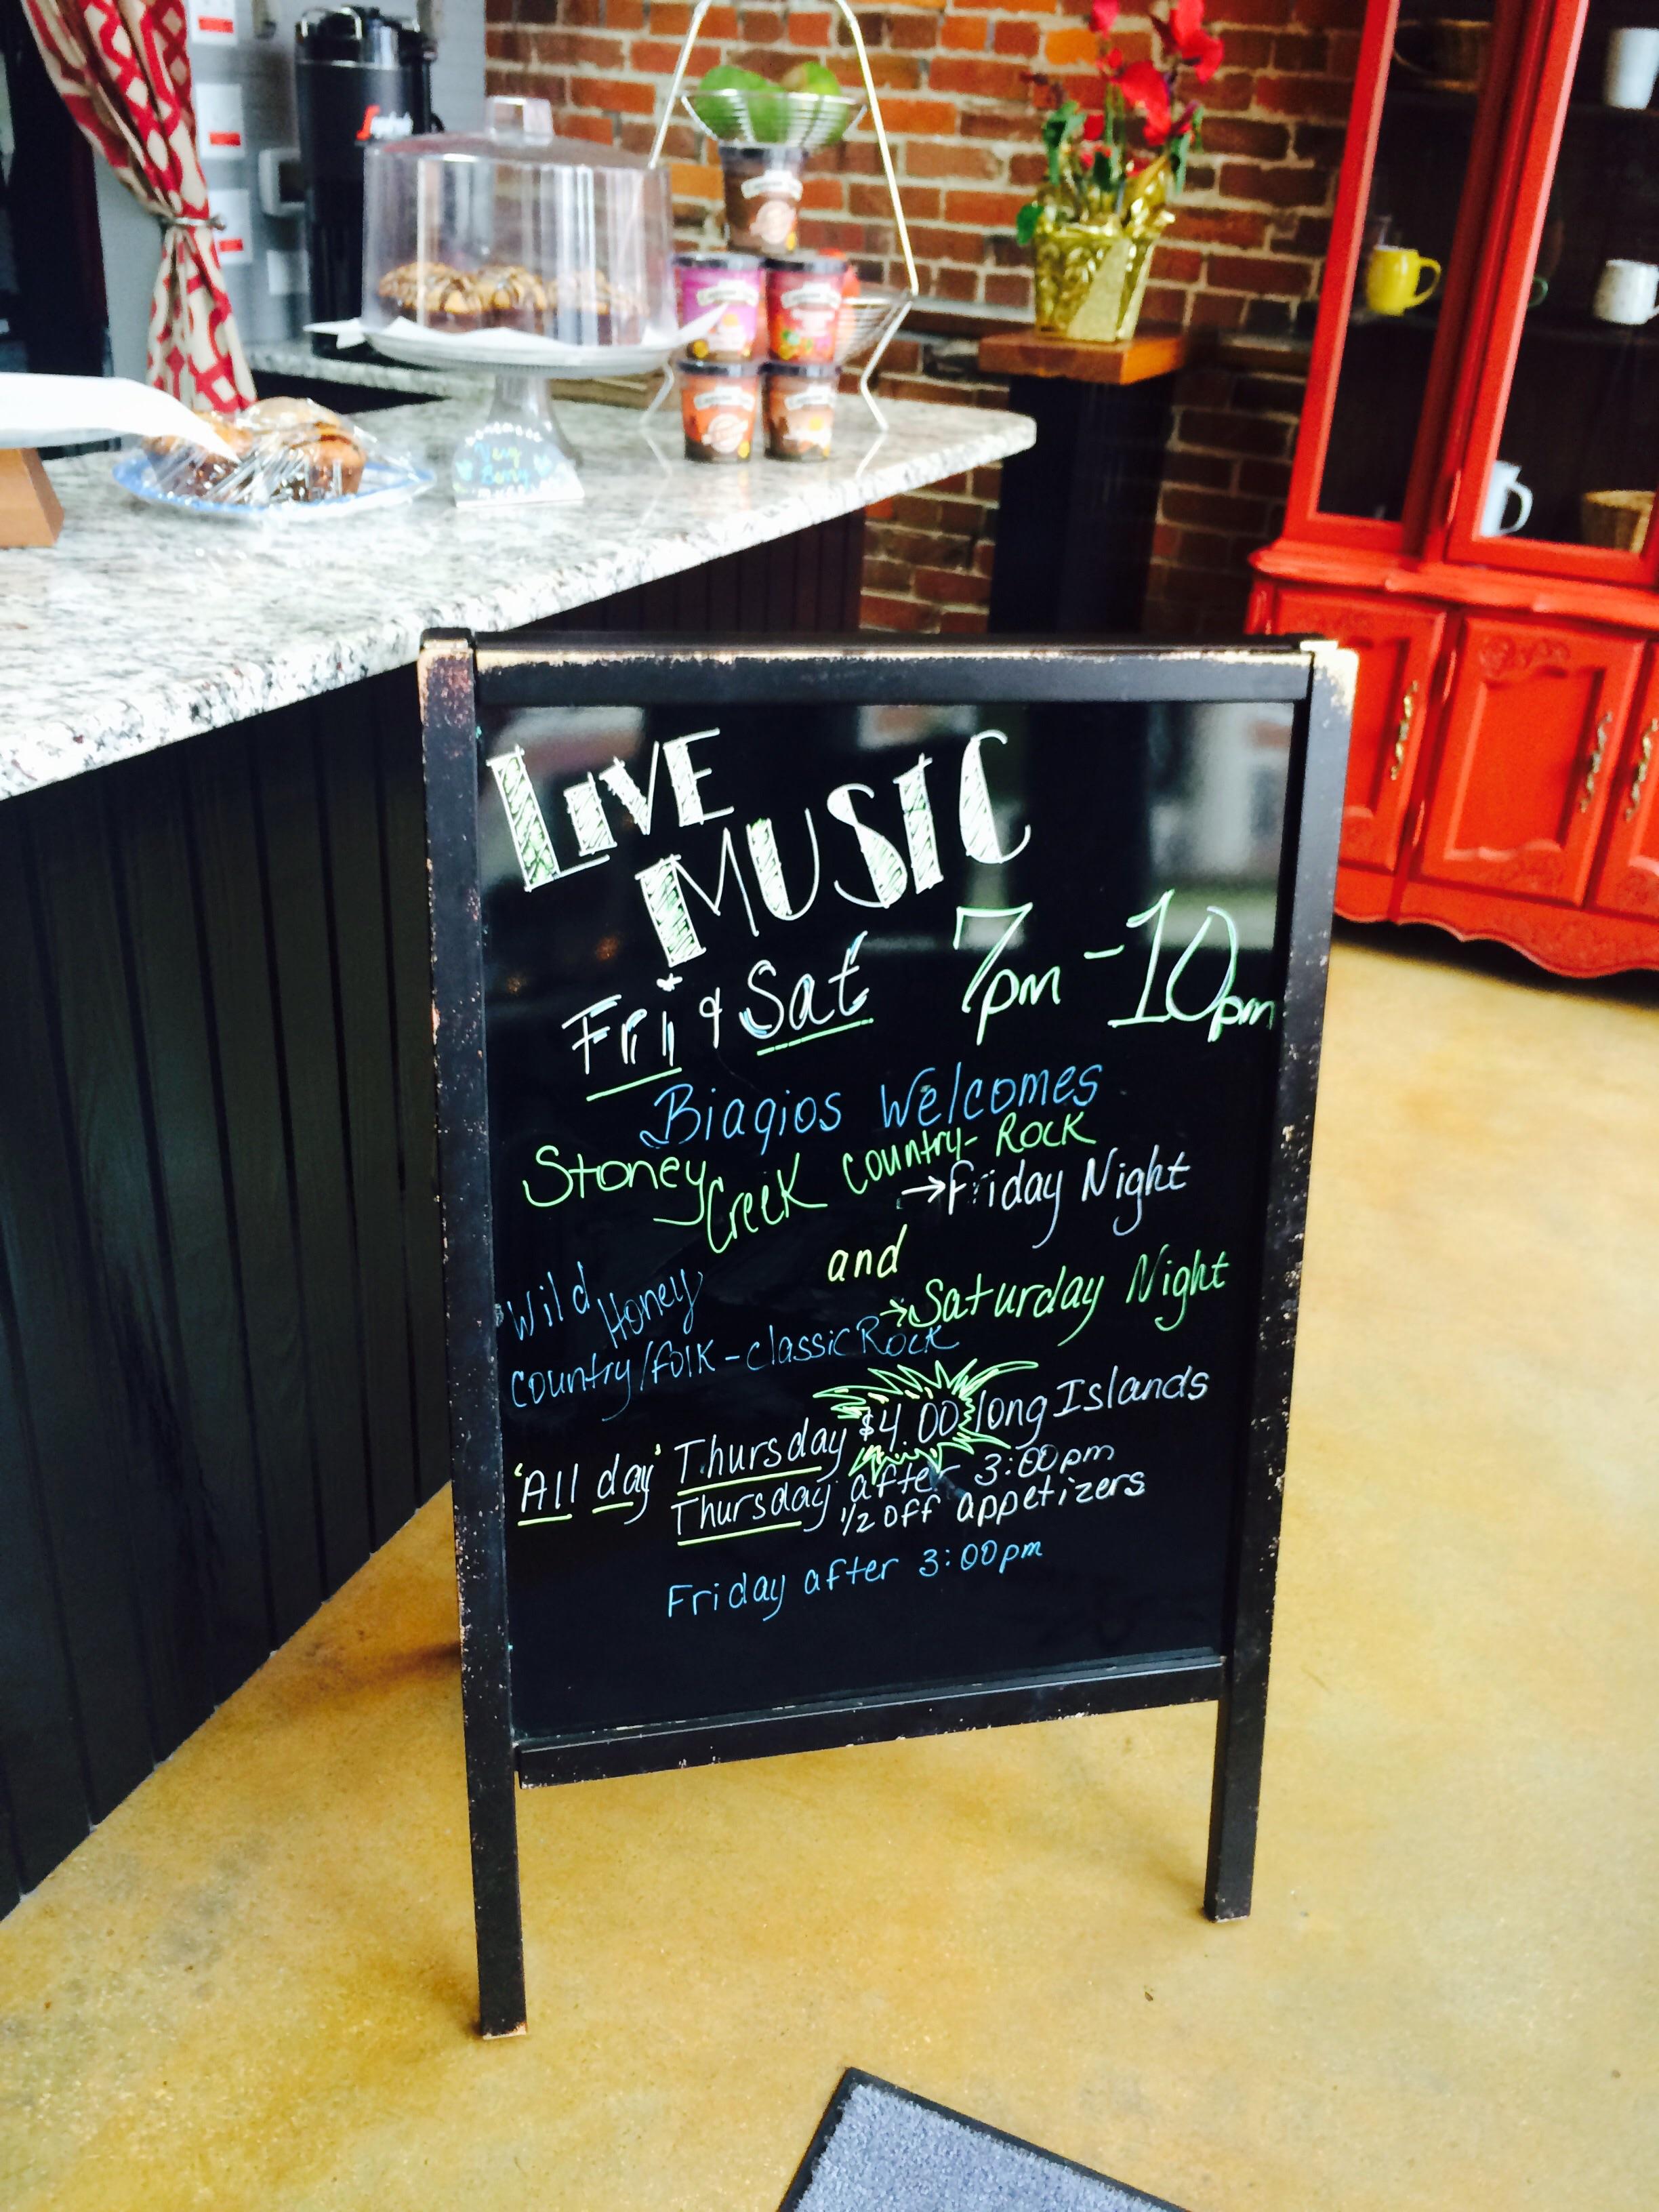 LIVE
MUSIC
Fri & Sat 7pm - 10pm
Biagios Welcomes
Stoney Creek Country-Rock
→Friday Night
and
Wild Honey →Saturday Night
Country/Folk-classic Rock
'All day' Thursday $4.00 long Islands
Thursday after 3:00pm
1/2 off appetizers
Friday after 3:00pm